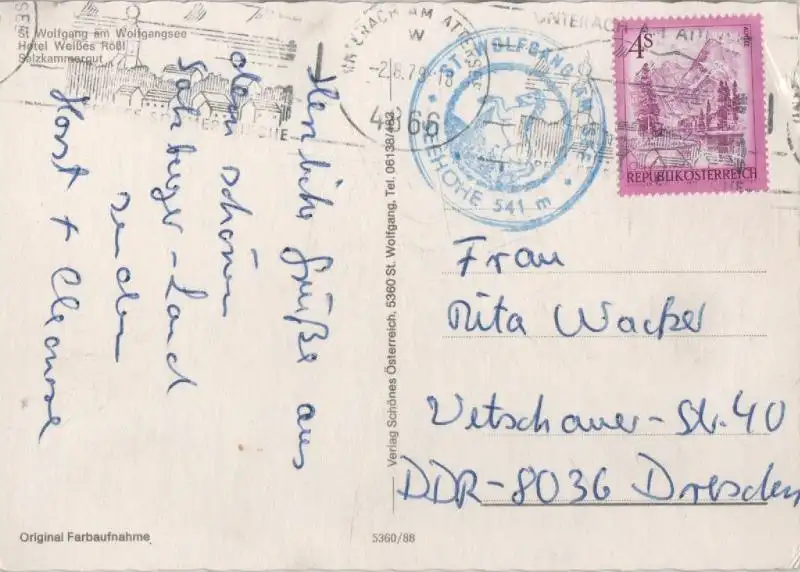 St. Wolfgang am Wolfgangsee
Hotel Weißes Rößl
Salzkammergut
Herzliche Grüße aus
dem schönen
Salzburger-Land
senden
Horst +
UNTERACH AM ATTERSEE
-2.8.79-18
4866
ST. WOLFGANG AM SEE
SEEHÖHE 541 m
UNTERACH AM
4S
REPUBLIK ÖSTERREICH
Frau
Rita Wacker
Vetschauer-Str. 40
DDR-8036 Dresden
Verlag Schönes Österreich, 5360 St. Wolfgang, Tel. 06138/483
Original Farbaufnahme
5360/88